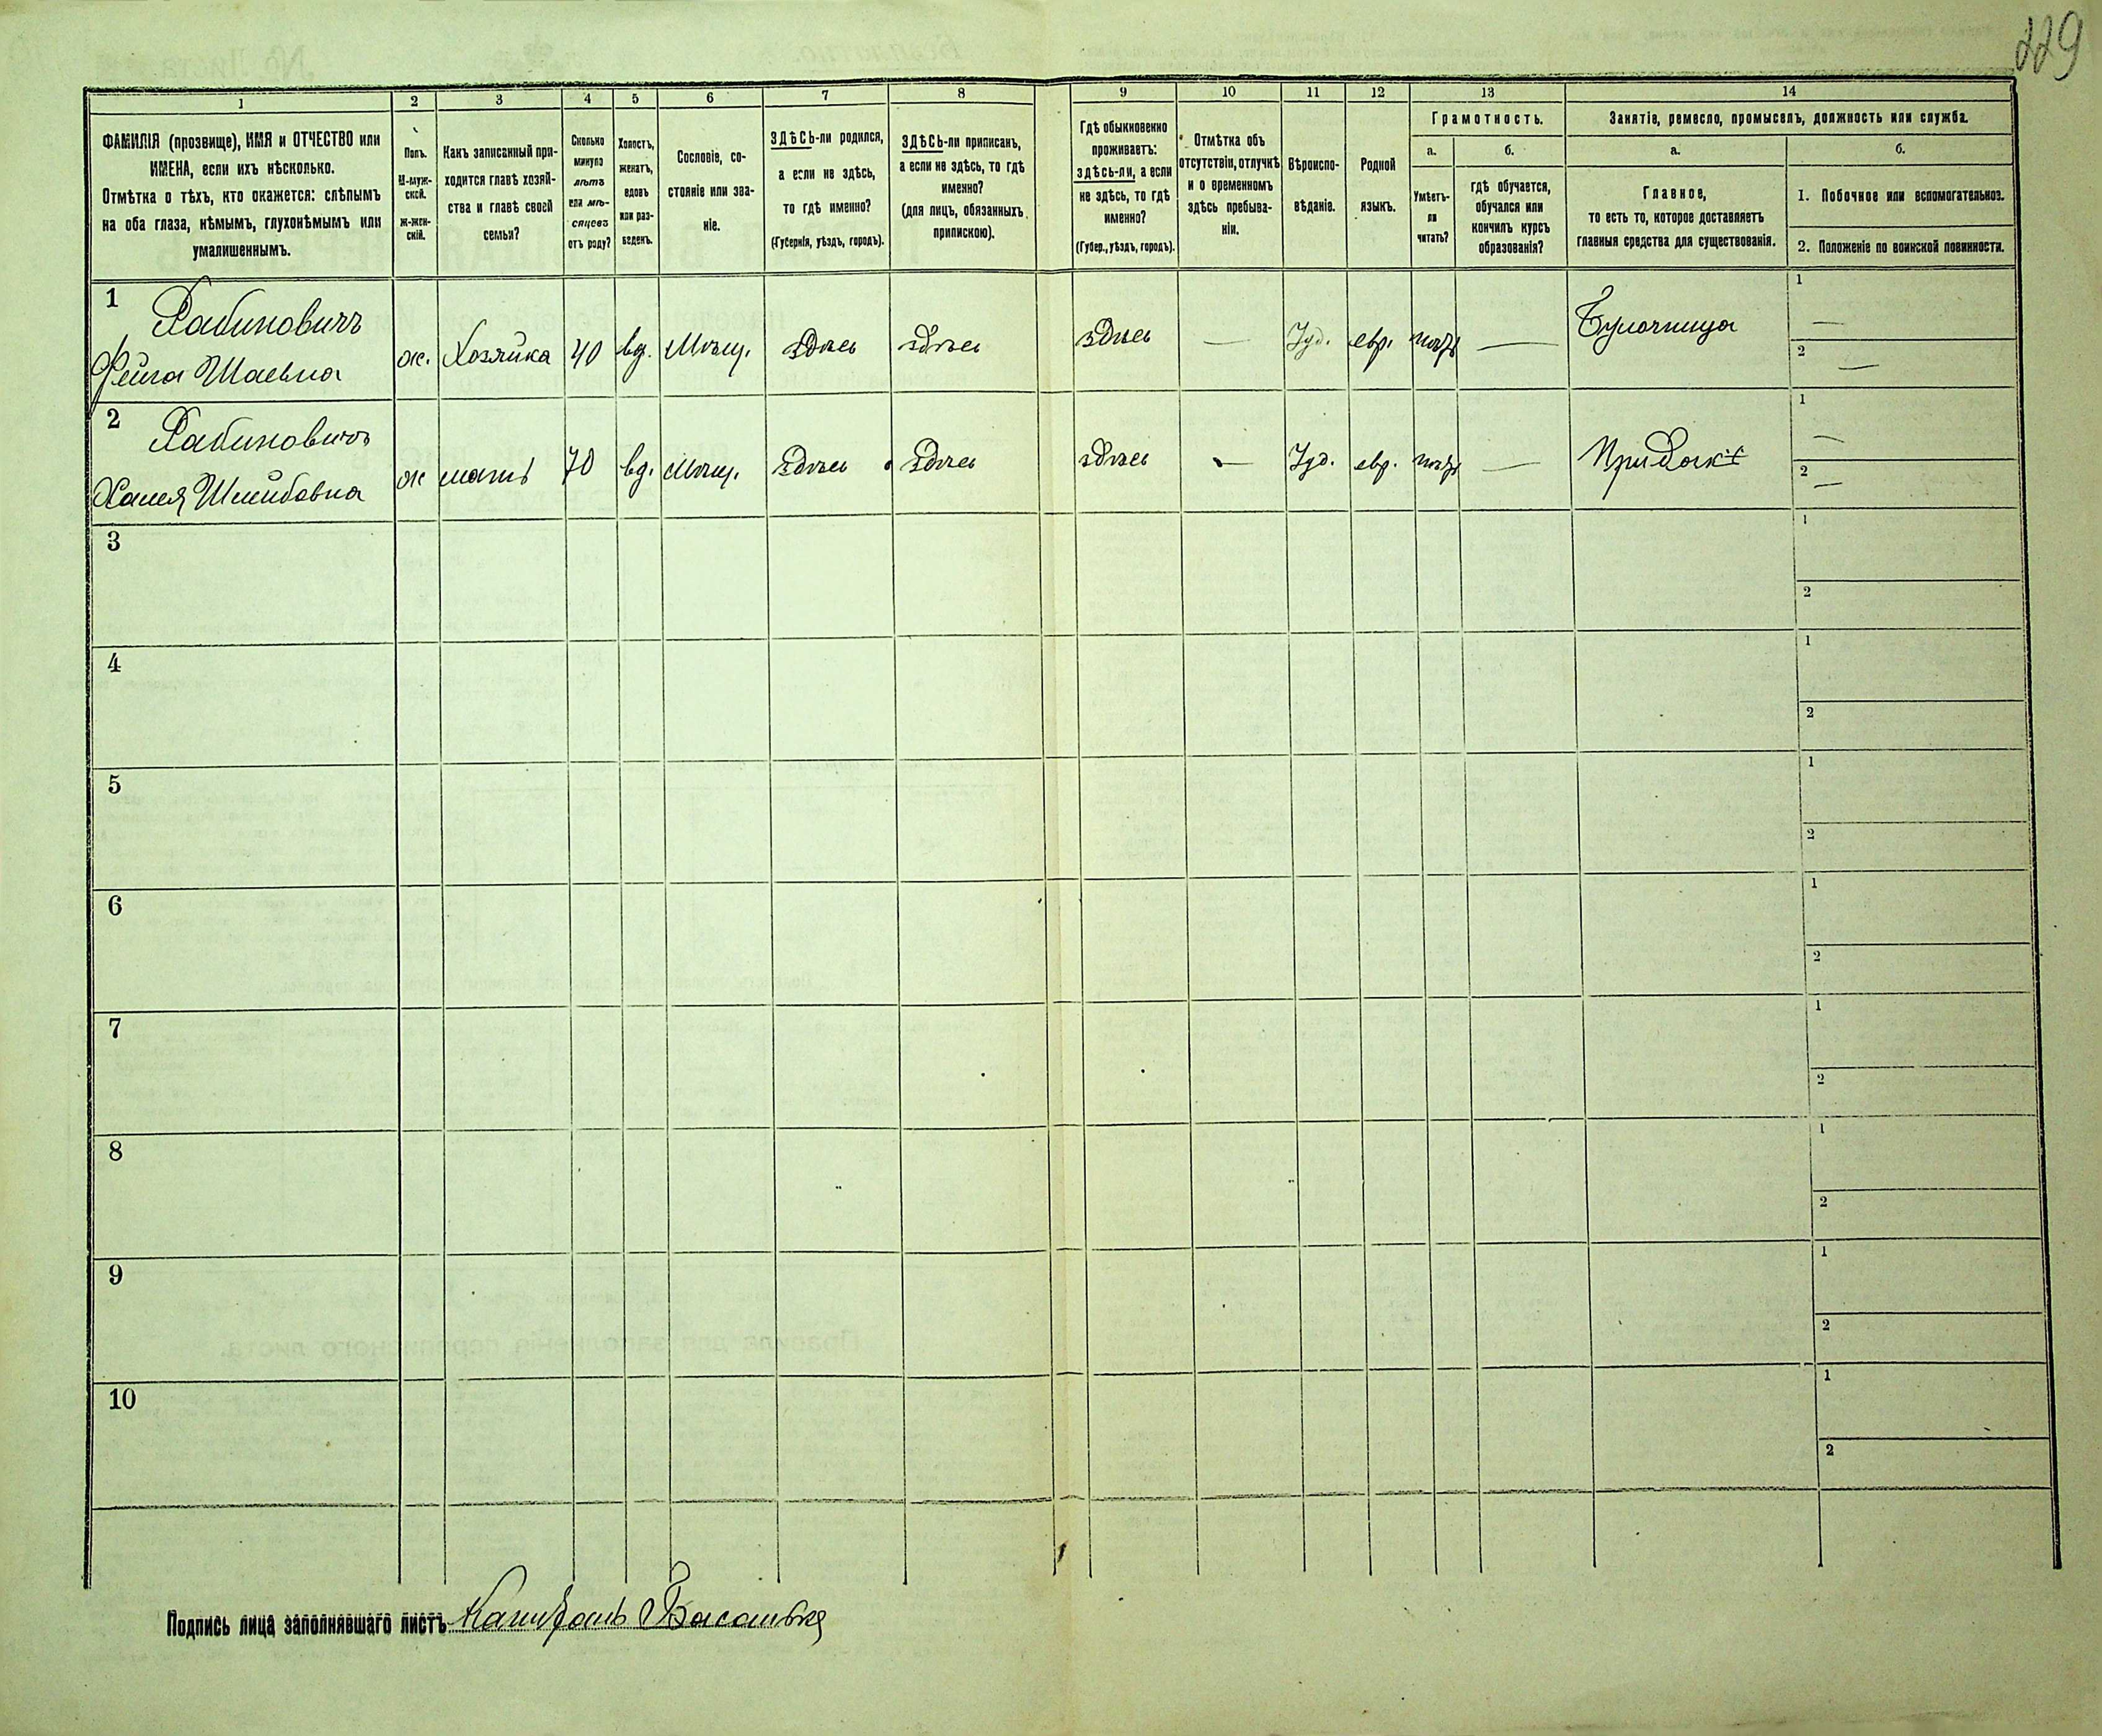 229
1
2
3
4
5
6
7
8
9
10
11
12
13
14
ФАМИЛІЯ (прозвище), ИМЯ и ОТЧЕСТВО или
ИМЕНА, если ихъ нѣсколько.
Отмѣтка о тѣхъ, кто окажется: слѣпымъ
на оба глаза, нѣмымъ, глухонѣмымъ или
умалишеннымъ.
Полъ.
М-муж-
ской.
ж-жен-
скій.
Какъ записанный при-
ходится главѣ хозяй-
ства и главѣ своей
семьи?
Сколько
минуло
лѣтъ
или мѣ-
сяцевъ
отъ роду?
Холостъ,
женатъ,
вдовъ
или раз-
веденъ.
Сословіе, со-
стояніе или зва-
ніе.
ЗДѢСЬ-ли родился,
а если не здѣсь,
то гдѣ именно?
(Губернія, уѣздъ, городъ).
ЗДѢСЬ-ли приписан,
а если не здѣсь, то гдѣ
именно?
(для лицъ, обязанныхъ
припискою).
Гдѣ обыкновенно
проживаетъ:
здѣсь-ли, а если
не здѣсь, то гдѣ
именно?
(Губер., уѣздъ, городъ).
Отмѣтка объ
отсутствіи, отлучкѣ
и о временномъ
здѣсь пребыва-
ніи.
Вѣроиспо-
вѣданіе.
Родной
языкъ.
Грамотность.
а.
Умѣетъ-
ли
читать?
б.
гдѣ обучается,
обучался или
кончилъ курсъ
образованія?
Занятіе, ремесло, промыселъ, должность или служба.
а.
Главное,
то есть то, которое доставляетъ
главныя средства для существованія.
б.
1. Побочное или вспомогательноз.
2. Положеніе по воинской повинности.
1 Рабиновичъ
Фейга Шаевна
ж. Хозяйка 40 вд. Мѣщ. здѣсь здѣсь здѣсь — Іуд. евр. — Булочница
1 —
2 —
2 Рабиновичъ
Шлиовна
ж мать 70 вд. Мѣщ. здѣсь здѣсь здѣсь — Іуд. евр. —
1 —
2 —
3
1
2
4
1
2
5
1
2
6
1
2
7
1
2
8
1
2
9
1
2
10
1
2
Подпись лица заполнявшаго листъ